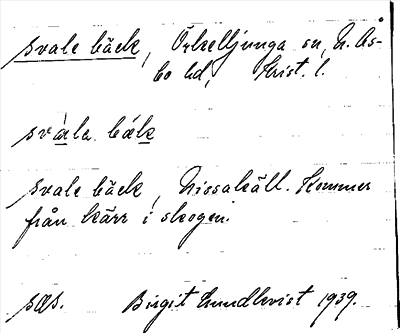 svale bäck, Örkelljunga sn, N. Ås-
bo hd, Krist. l.
svàla bäk
svale bäck, Nissakäll. Kommer
från kärr i skogen.
sas. Birgit Lundkvist 1939.